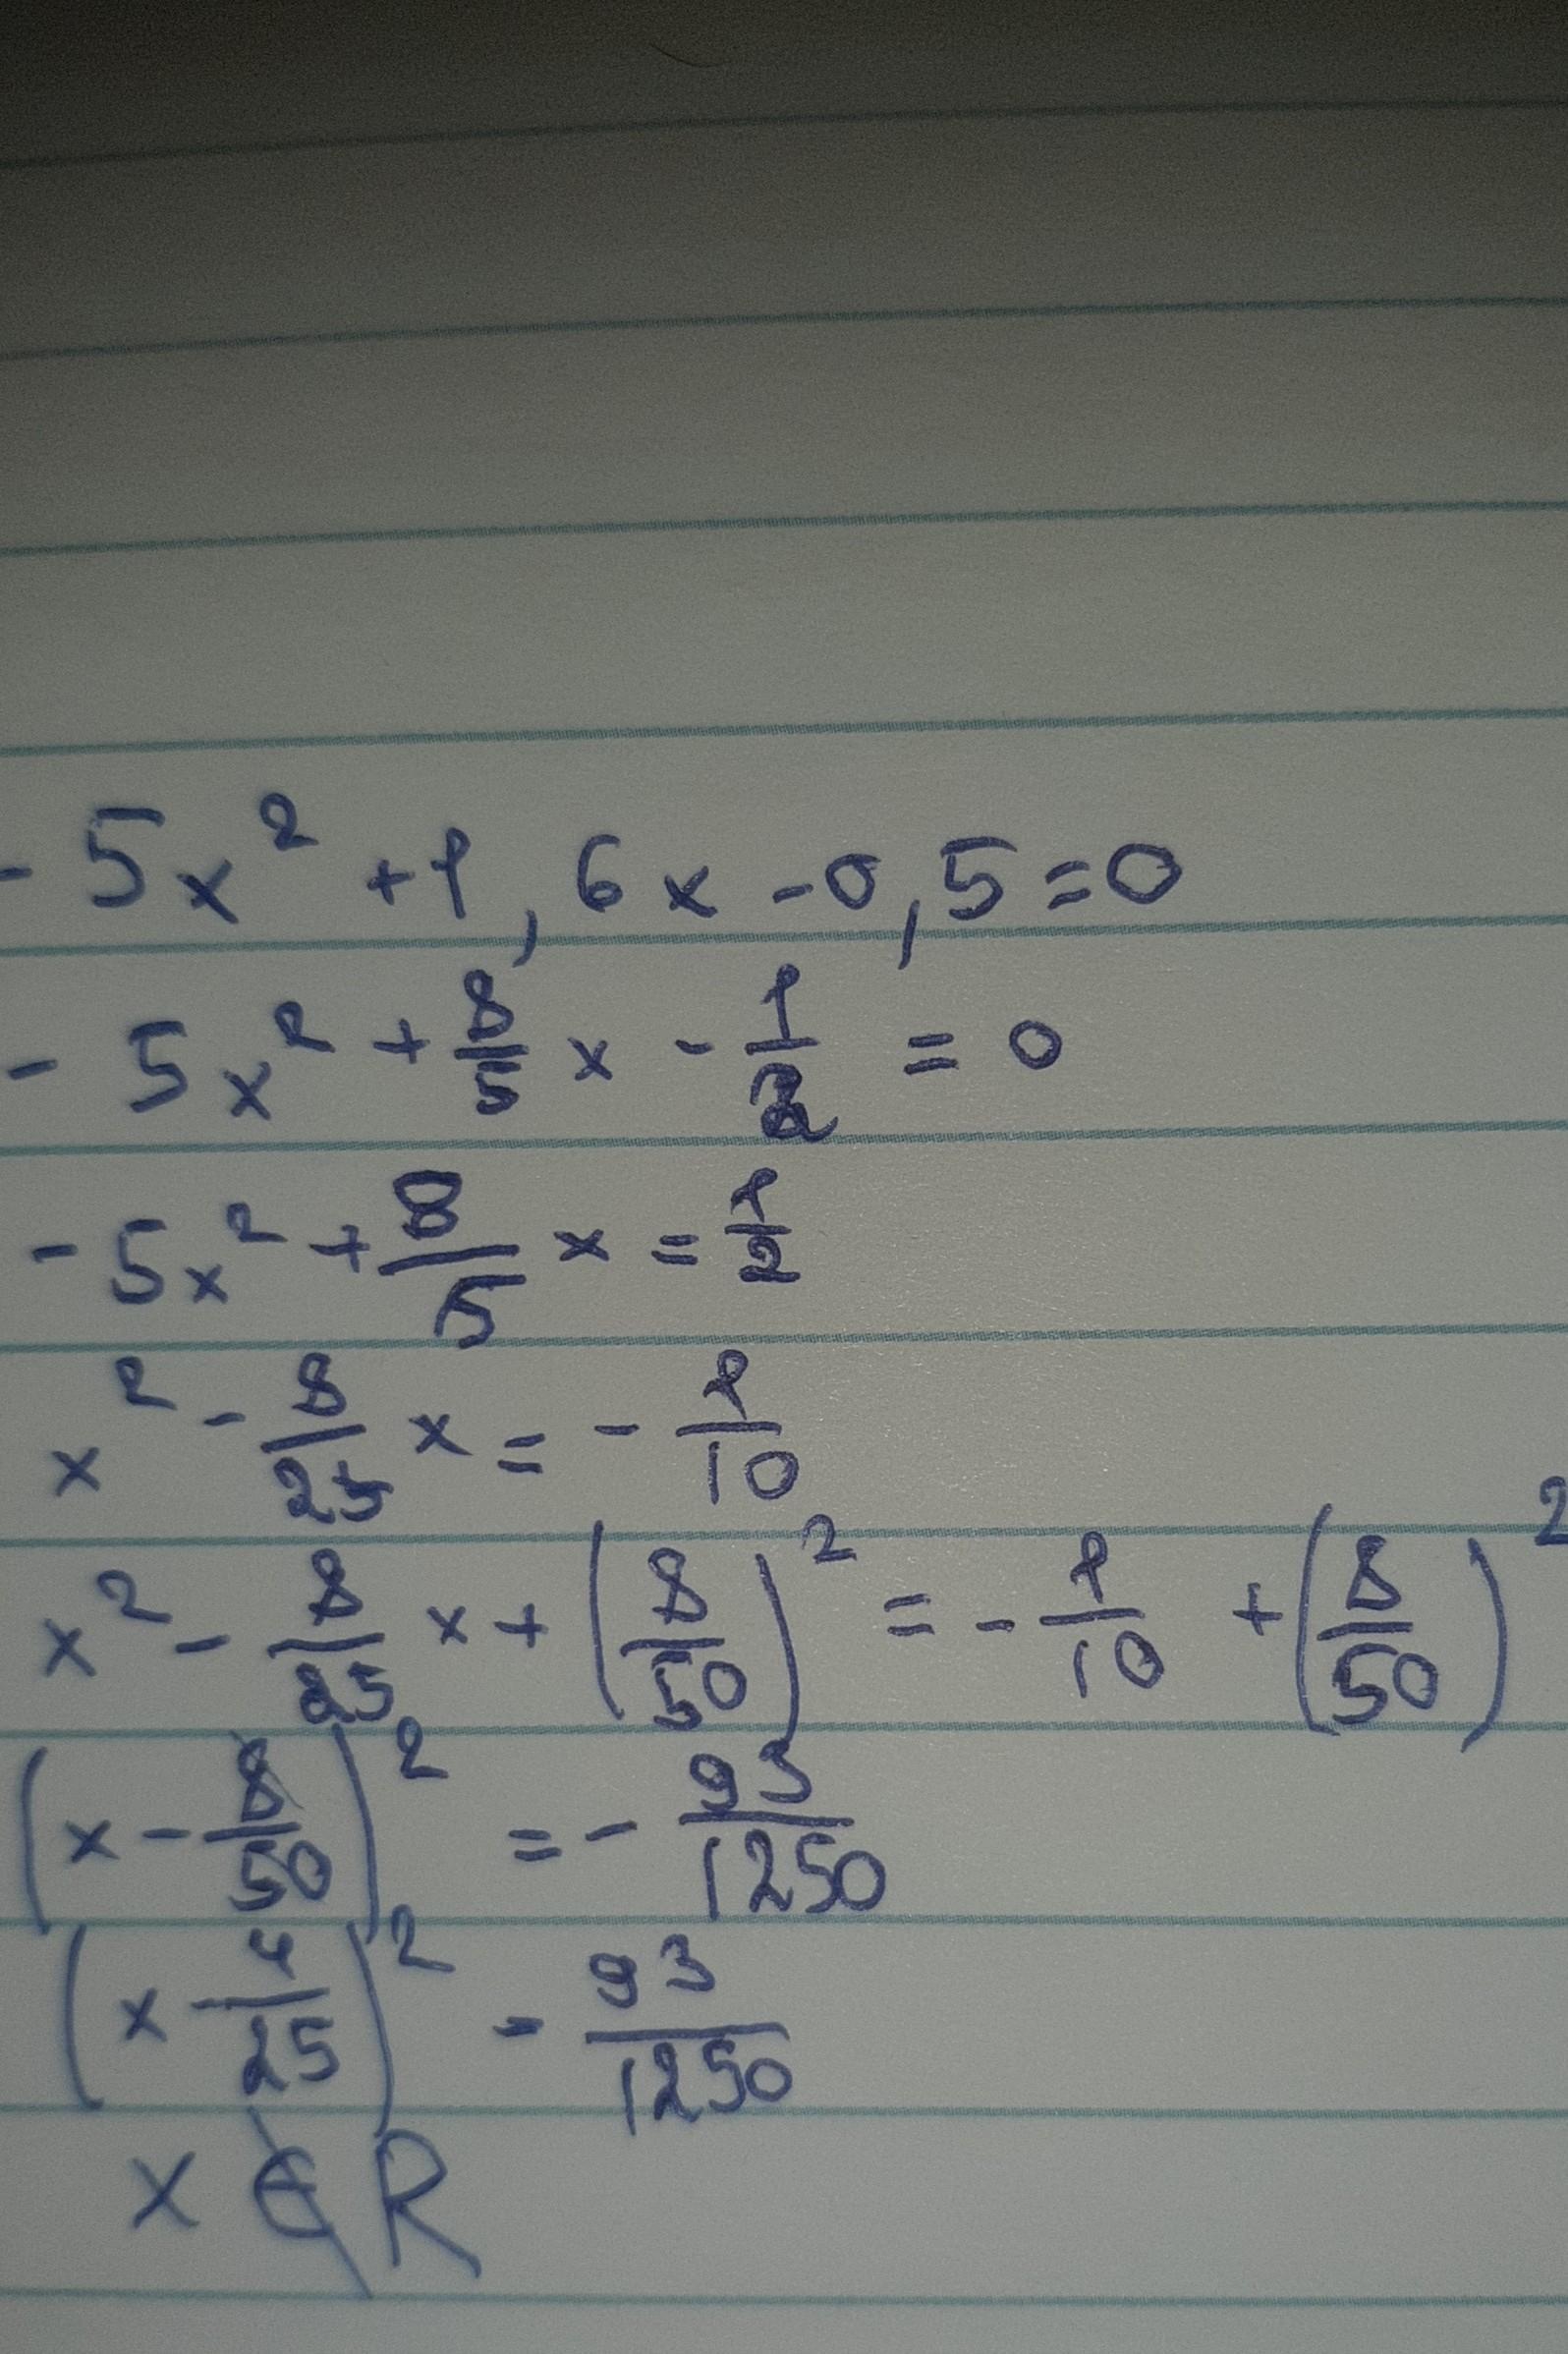 - 5x² + 1,6x - 0,5 = 0
- 5x² + 8/5 x - 1/2 = 0
- 5x² + 8/5 x = 1/2
x² - 8/25 x = - 1/10
x² - 8/25 x + (8/50)² = - 1/10 + (8/50)²
(x - 8/50)² = - 93/1250
(x - 4/25)² - 93/1250
x ∉ R